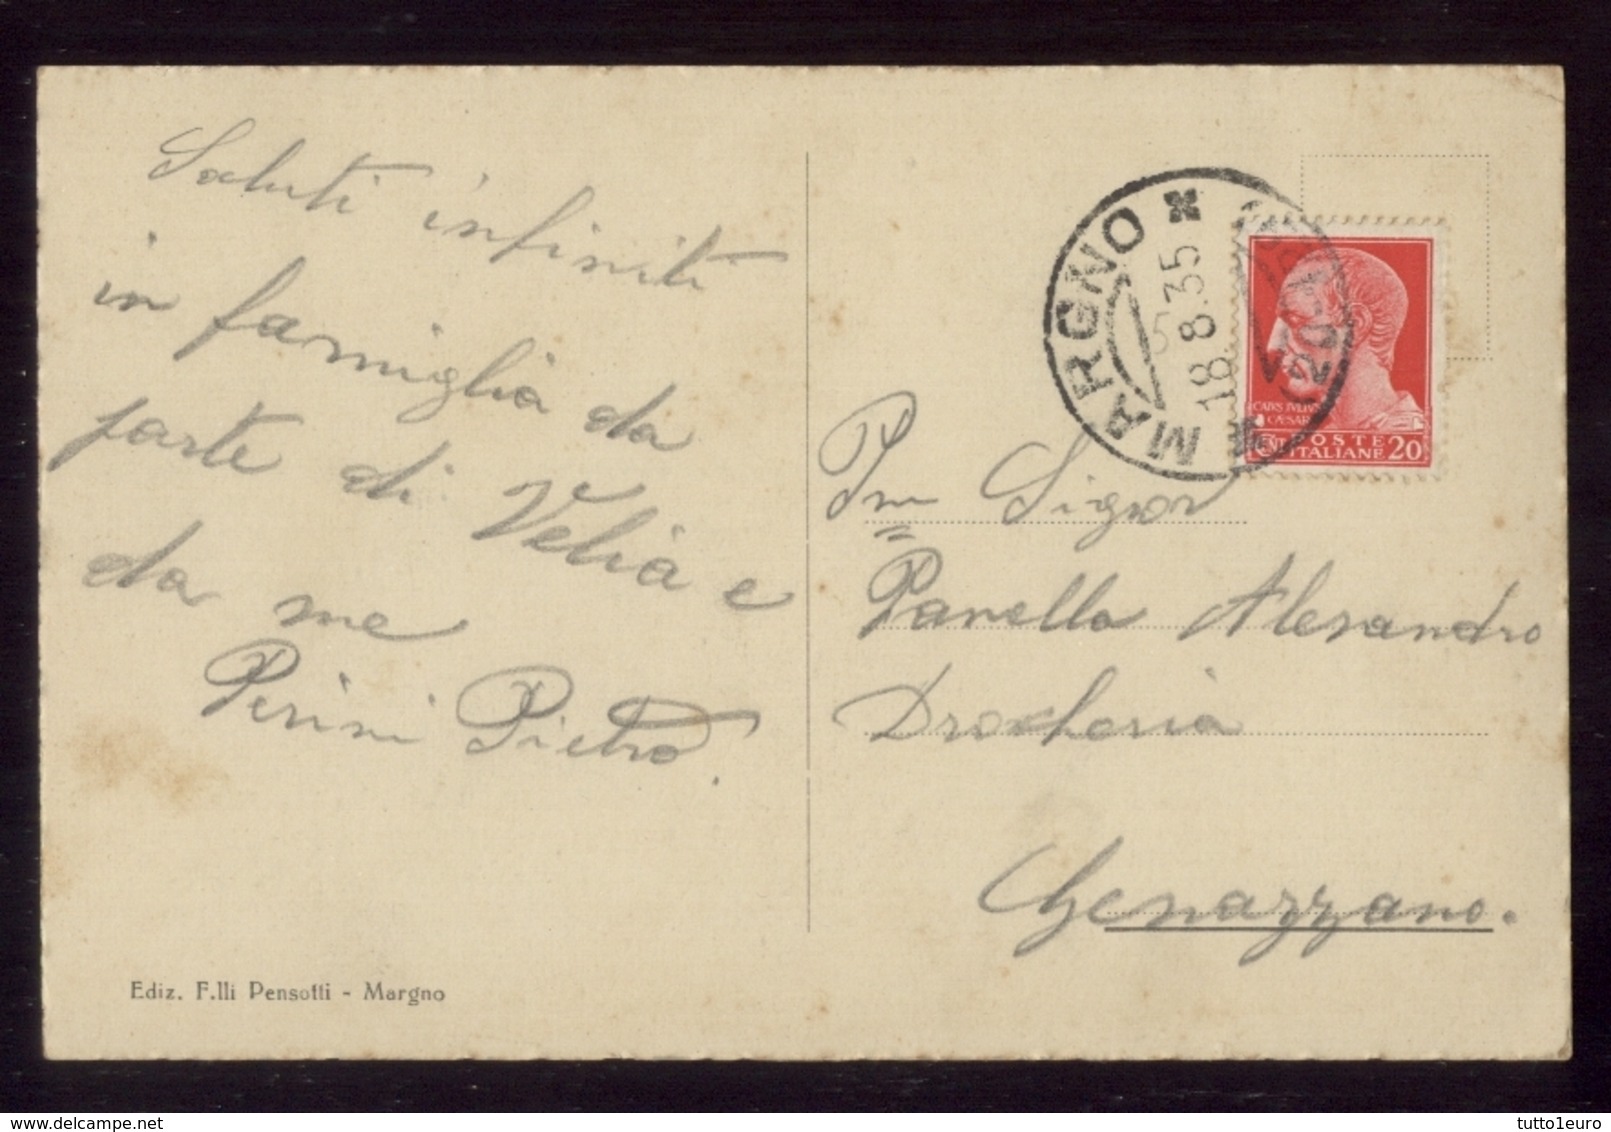 Saluti infiniti
in famiglia da
parte di Velia e
da me
Perini Pietro.
Ediz. F.lli Pensotti - Margno
MARGNO
18 8.35
CAIVS IVLIVS
CAESAR
POSTE
CENT ITALIANE 20
Signor
Panella Alesandro
Drocheria
Genazzano.
tutto1euro